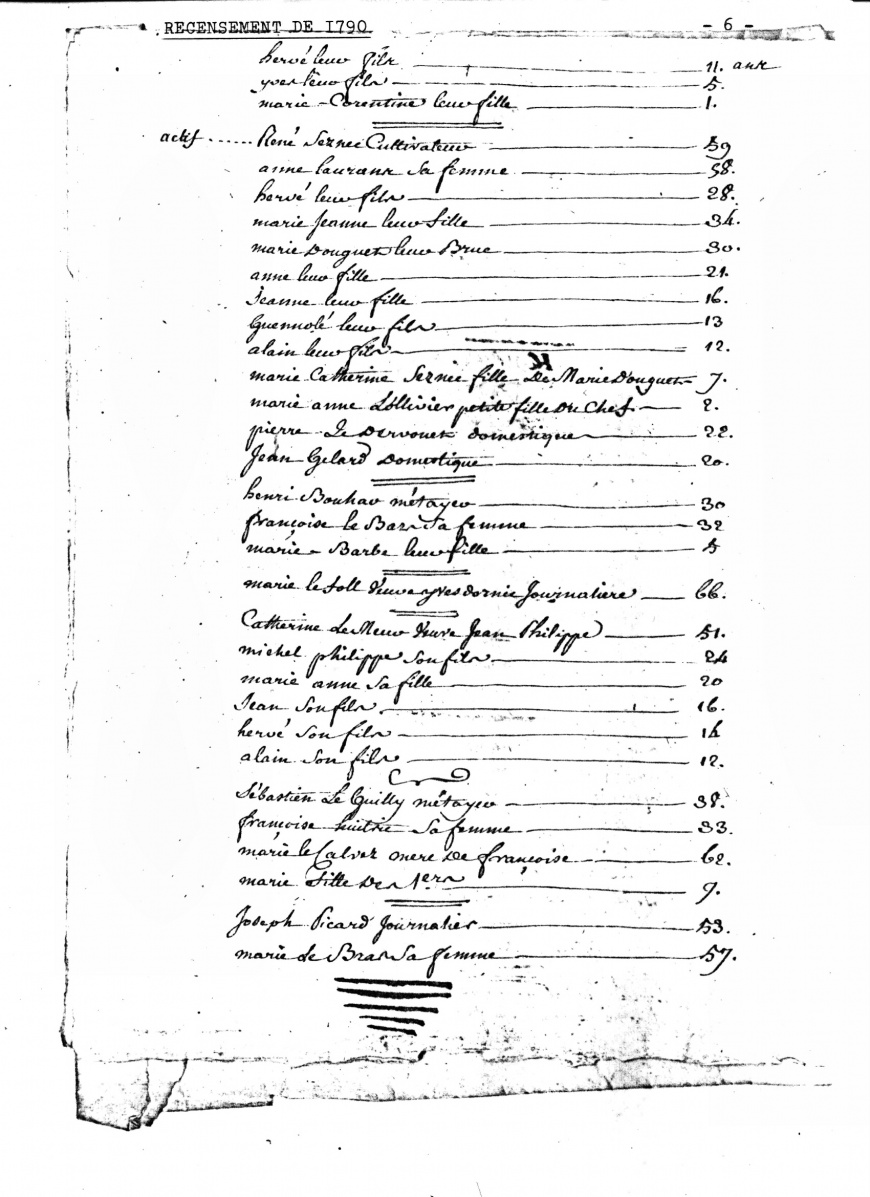 RECENSEMENT DE 1790 - 6 -
hervé leur fils 11. ans
yves leur fils 5.
marie - Corentine leur fille 1.
actif ...... René Seznec Cultivateur 59
anne laurans sa femme 58.
hervé leur fils 28.
marie Jeanne leur fille 34.
marie Douguet leur Brue 30.
anne leur fille 21.
Jeanne leur fille 16.
Guennolé leur fils 13
alain leur fils 12.
marie Catherine Seznec fille De Marie Douguet 7.
marie anne L'ollivier petite fille Du Chef 2.
pierre Le Dervouet domestique 22.
Jean Gelard Domestique 20.
henri Bouhar métayer 30
françoise le Bars sa femme 32
marie - Barbe leur fille 5
marie le foll veuve yves dornic Journaliere 66.
Catherine Le Meur veuve Jean Philippe 51.
michel philippe son fils 24
marie anne sa fille 20
Jean son fils 16.
hervé son fils 14
alain son fils 12.
Sébastien Le Guilly métayer 38.
françoise huitric sa femme 33.
marie le Calvez mere De françoise 62.
marie fille Des 1ers 9.
Joseph Picard Journalier 53.
marie Le Bras sa femme 57.